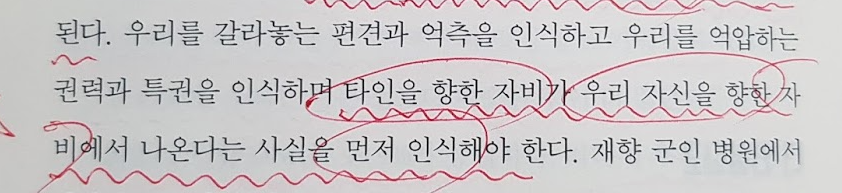 된다. 우리를 갈라놓는 편견과 억측을 인식하고 우리를 억압하는
권력과 특권을 인식하며 타인을 향한 자비가 우리 자신을 향한 자
비에서 나온다는 사실을 먼저 인식해야 한다. 재향 군인 병원에서